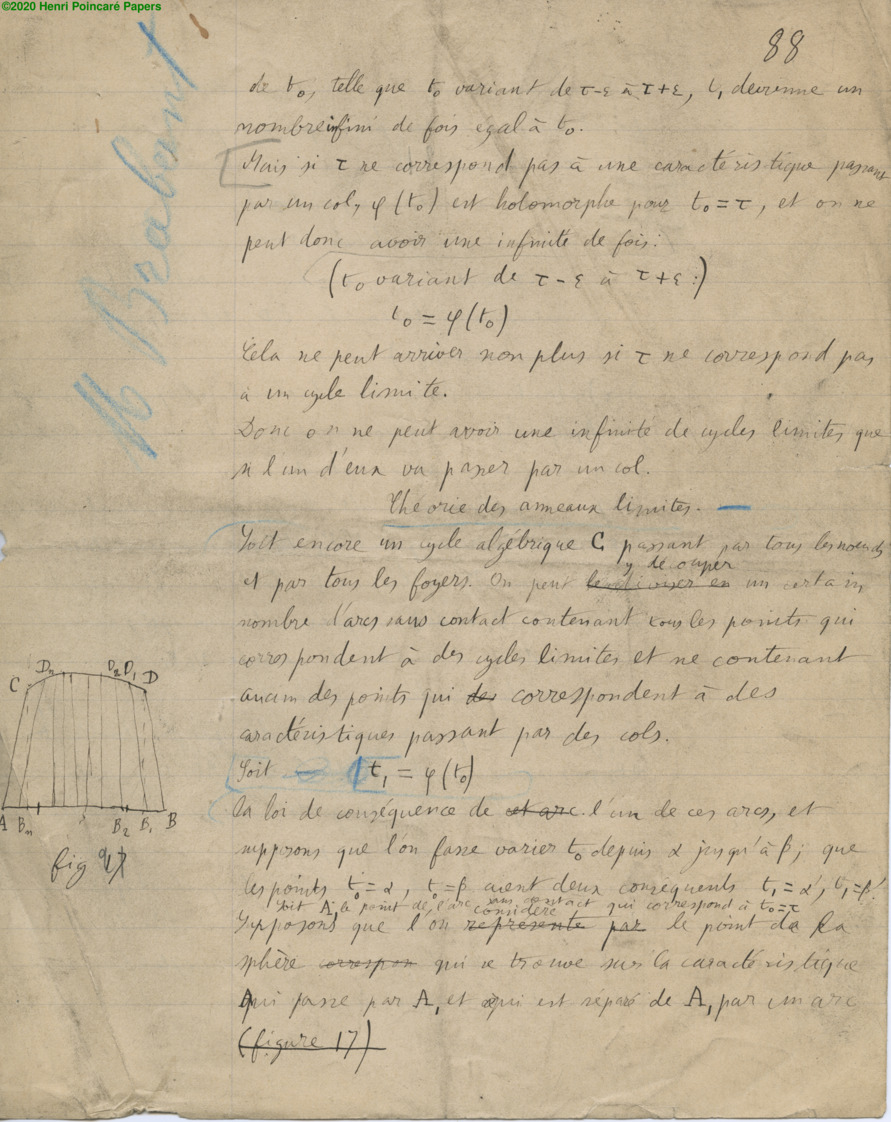 ©2020 Henri Poincaré Papers
88
M Brabant
de t₀, telle que t₀ variant de τ-ε à τ+ε, t₁ devienne un
nombre infini de fois égal à t₀.
Mais si τ ne correspond pas à une caractéristique passant
par un col, φ(t₀) est holomorphe pour t₀ = τ, et on ne
peut donc avoir une infinité de fois:
(t₀ variant de τ-ε à τ+ε:)
t₀ = φ(t₀)
Cela ne peut arriver non plus si τ ne correspond pas
à un cycle limite.
Donc on ne peut avoir une infinité de cycles limites que
si l'un d'eux va passer par un col.
Théorie des anneaux limites. —
Soit encore un cycle algébrique C passant par tous les nœuds
y découper
et par tous les foyers. On peut en un certain
nombre d'arcs sans contact contenant tous les points qui
correspondent à des cycles limites et ne contenant
aucun des points qui des correspondent à des
caractéristiques passant par des cols.
Soit t₁ = φ(t₀)
la loi de conséquence de cet arc l'un de ces arcs, et
supposons que l'on fasse varier t₀ depuis α jusqu'à β; que
les points t₀ = α, t₀ = β aient deux conséquents t₁ = α', t₁ = β'.
Soit A₁ le point de l'arc sans contact qui correspond à t₀ = τ
considéré
Supposons que l'on représente par le point de la
sphère correspon qui se trouve sur la caractéristique
qui passe par A₁ et qui est séparé de A₁ par un arc
(figure 17)
C Dₙ D₂ D₁ D
A Bₙ B₂ B₁ B
fig 17